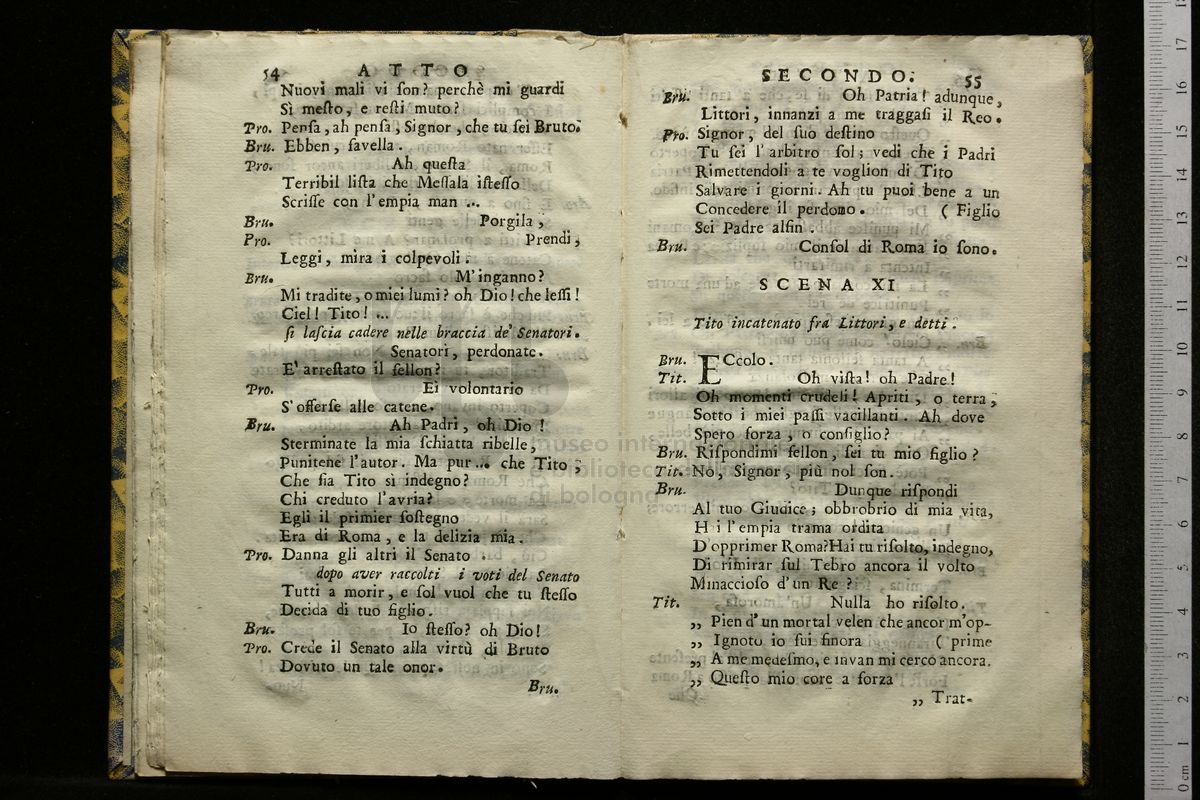 54 ATTO
Nuovi mali vi ſon? perchè mi guardi
Sì meſto, e reſti muto?
Pro. Penſa, ah penſa, Signor, che tu ſei Bruto.
Bru. Ebben, favella.
Pro. Ah queſta
Terribil liſta che Meſſala iſteſſo
Scriſſe con l'empia man ...
Bru. Porgila,
Pro. Prendi,
Leggi, mira i colpevoli.
Bru. M'inganno?
Mi tradite, o miei lumi? oh Dio! che leſſi!
Ciel! Tito! ...
ſi laſcia cadere nelle braccia de' Senatori.
Senatori, perdonate.
E' arreſtato il fellon?
Pro. Ei volontario
S'offerſe alle catene.
Bru. Ah Padri, oh Dio!
Sterminate la mia ſchiatta ribelle,
Punitene l'autor. Ma pur... che Tito,
Che ſia Tito sì indegno?
Chi creduto l'avria?
Egli il primier ſoſtegno
Era di Roma, e la delizia mia.
Pro. Danna gli altri il Senato.
dopo aver raccolti i voti del Senato
Tutti a morir, e ſol vuol che tu ſteſſo
Decida di tuo figlio.
Bru. Io ſteſſo? oh Dio!
Pro. Crede il Senato alla virtù di Bruto
Dovuto un tale onor.
Bru.
SECONDO. 55
Bru. Oh Patria! adunque,
Littori, innanzi a me traggaſi il Reo.
Pro. Signor, del ſuo deſtino
Tu ſei l'arbitro ſol; vedi che i Padri
Rimettendoli a te voglion di Tito
Salvare i giorni. Ah tu puoi bene a un
Concedere il perdono. ( Figlio
Sei Padre alfin.
Bru. Conſol di Roma io ſono.
SCENA XI
Tito incatenato fra Littori, e detti.
Bru. ECcolo.
Tit. Oh viſta! oh Padre!
Oh momenti crudeli! Apriti, o terra,
Sotto i miei paſſi vacillanti. Ah dove
Spero forza, o conſiglio?
Bru. Riſpondimi fellon, ſei tu mio figlio?
Tit. No, Signor, più nol ſon.
Bru. Dunque riſpondi
Al tuo Giudice; obbrobrio di mia vita,
H i l'empia trama ordita
D'opprimer Roma? Hai tu riſolto, indegno,
Di rimirar ſul Tebro ancora il volto
Minaccioſo d'un Re?
Tit. Nulla ho riſolto.
„ Pien d'un mortal velen che ancor m'op-
„ Ignoto io fui finora ( prime
„ A me medeſmo, e invan mi cerco ancora.
„ Queſto mio core a forza
„ Trat-